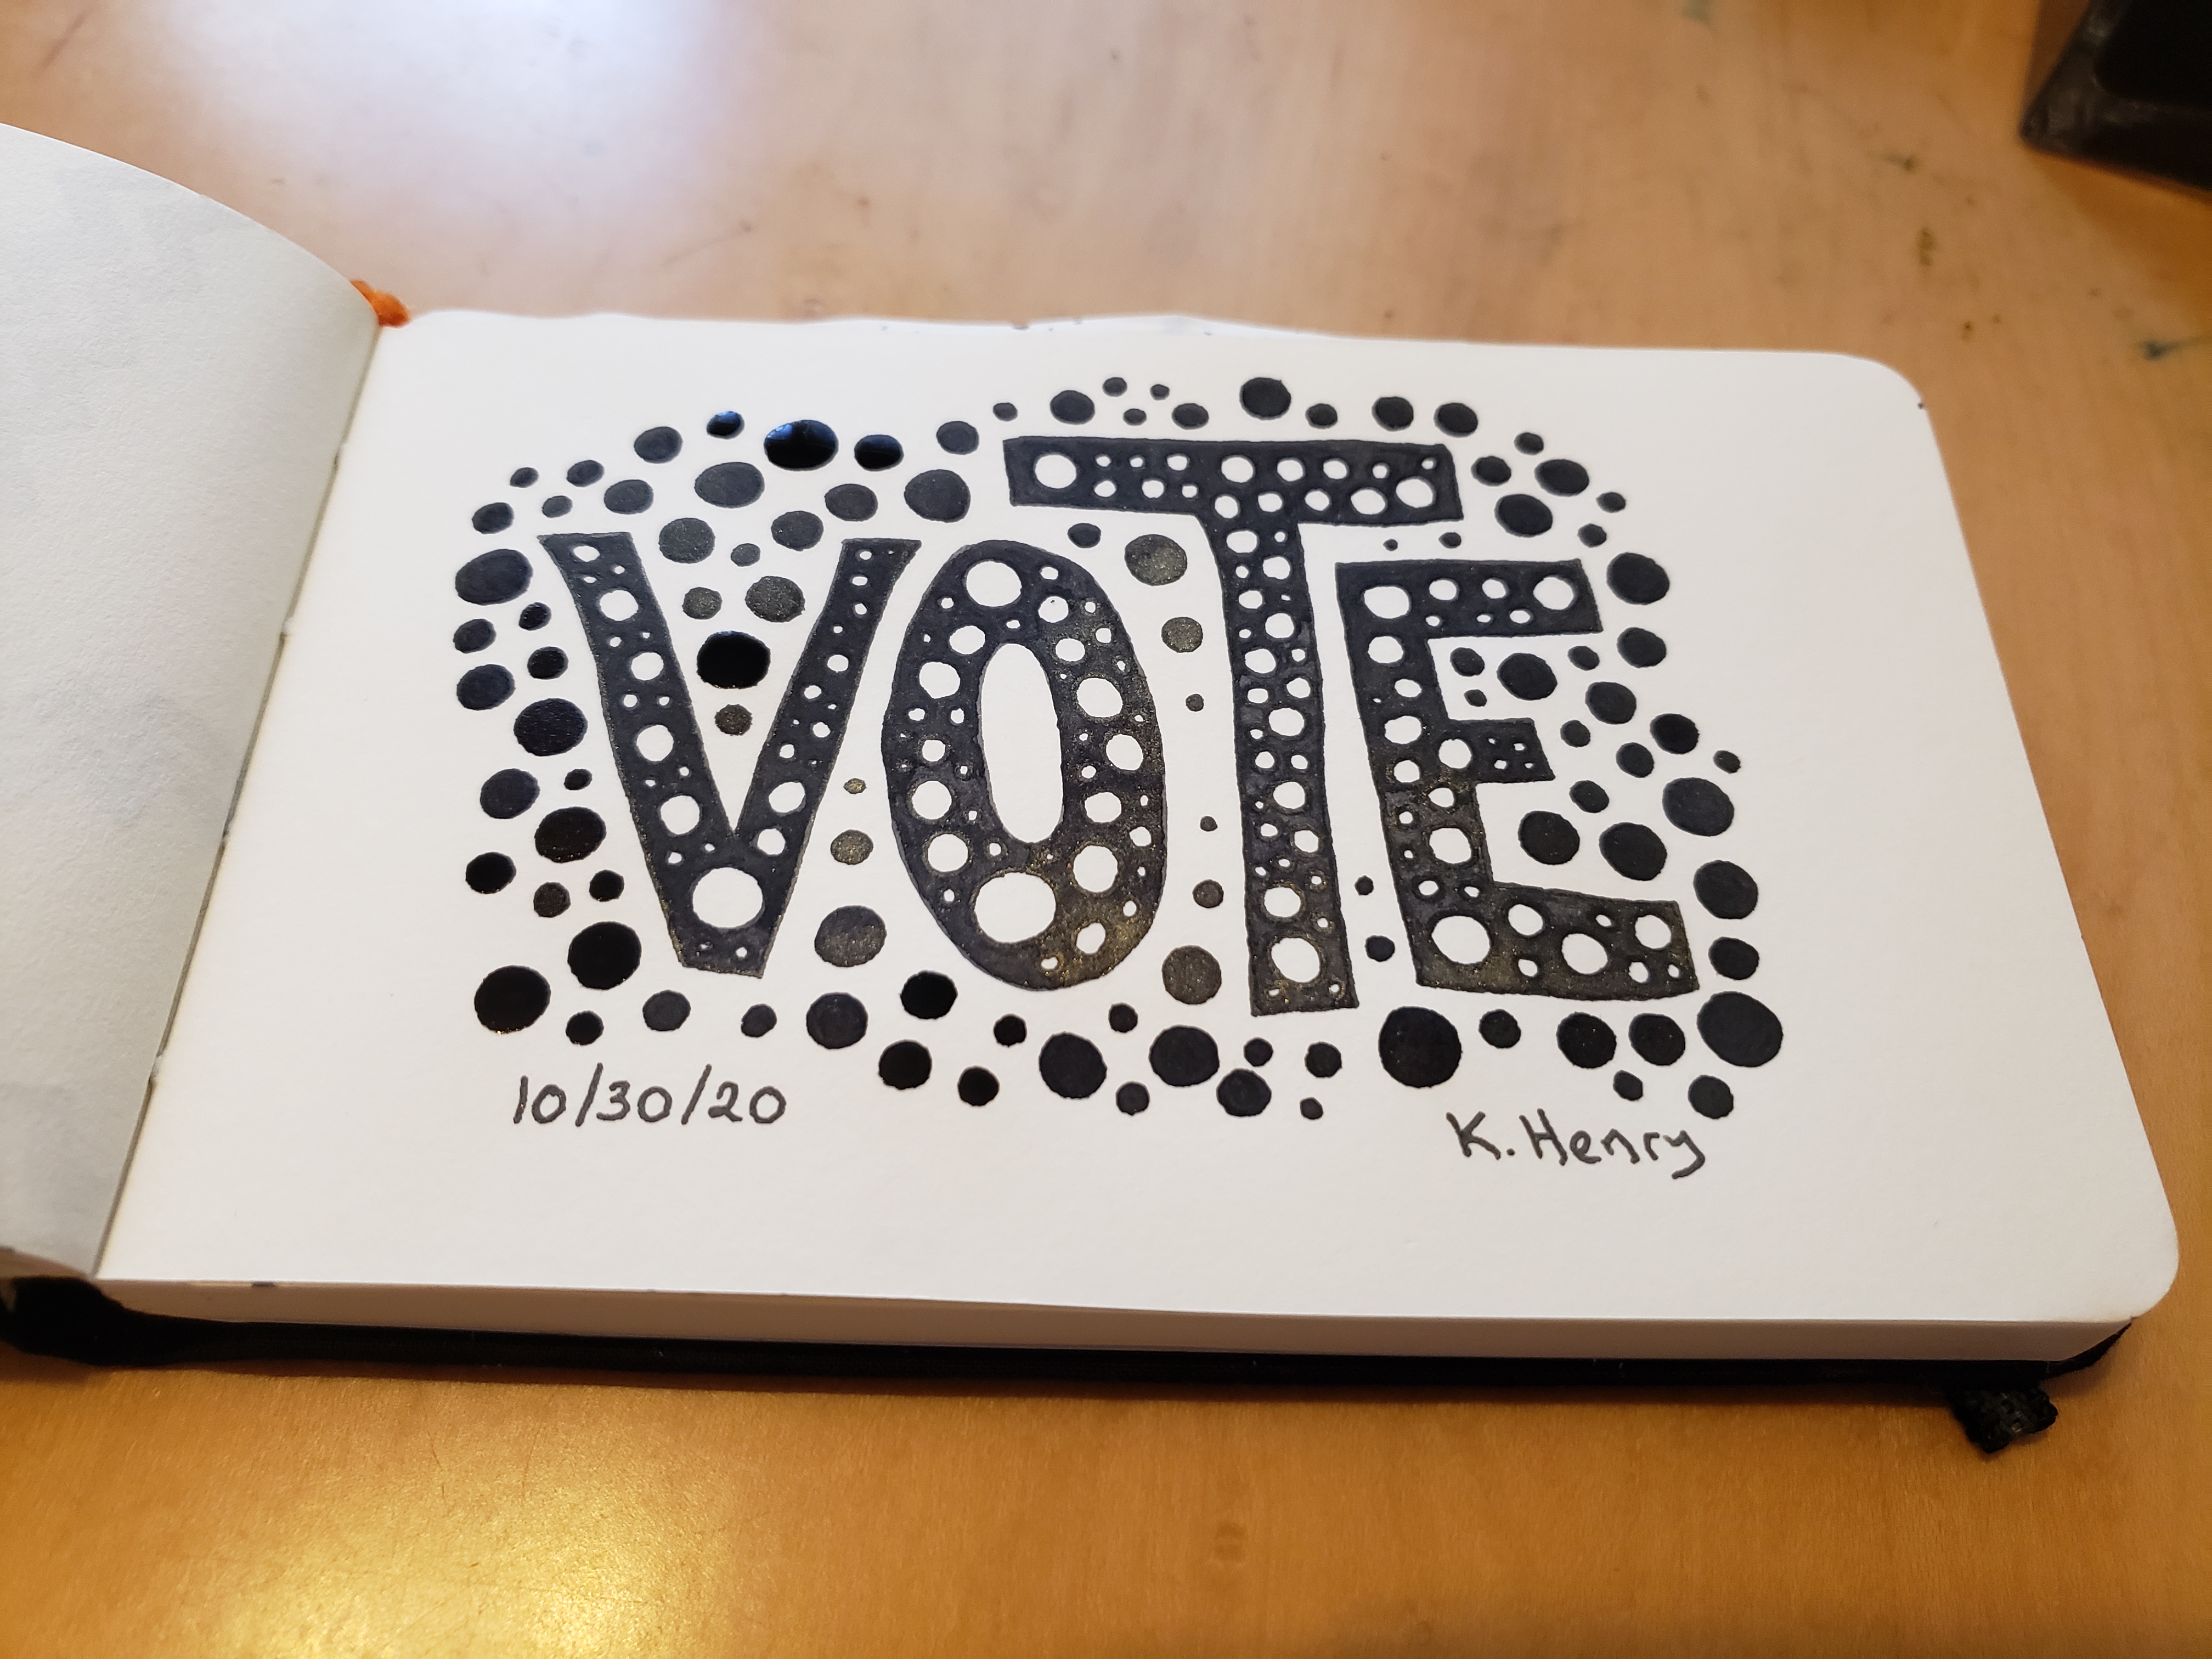 VOTE
10/30/20
K. Henry